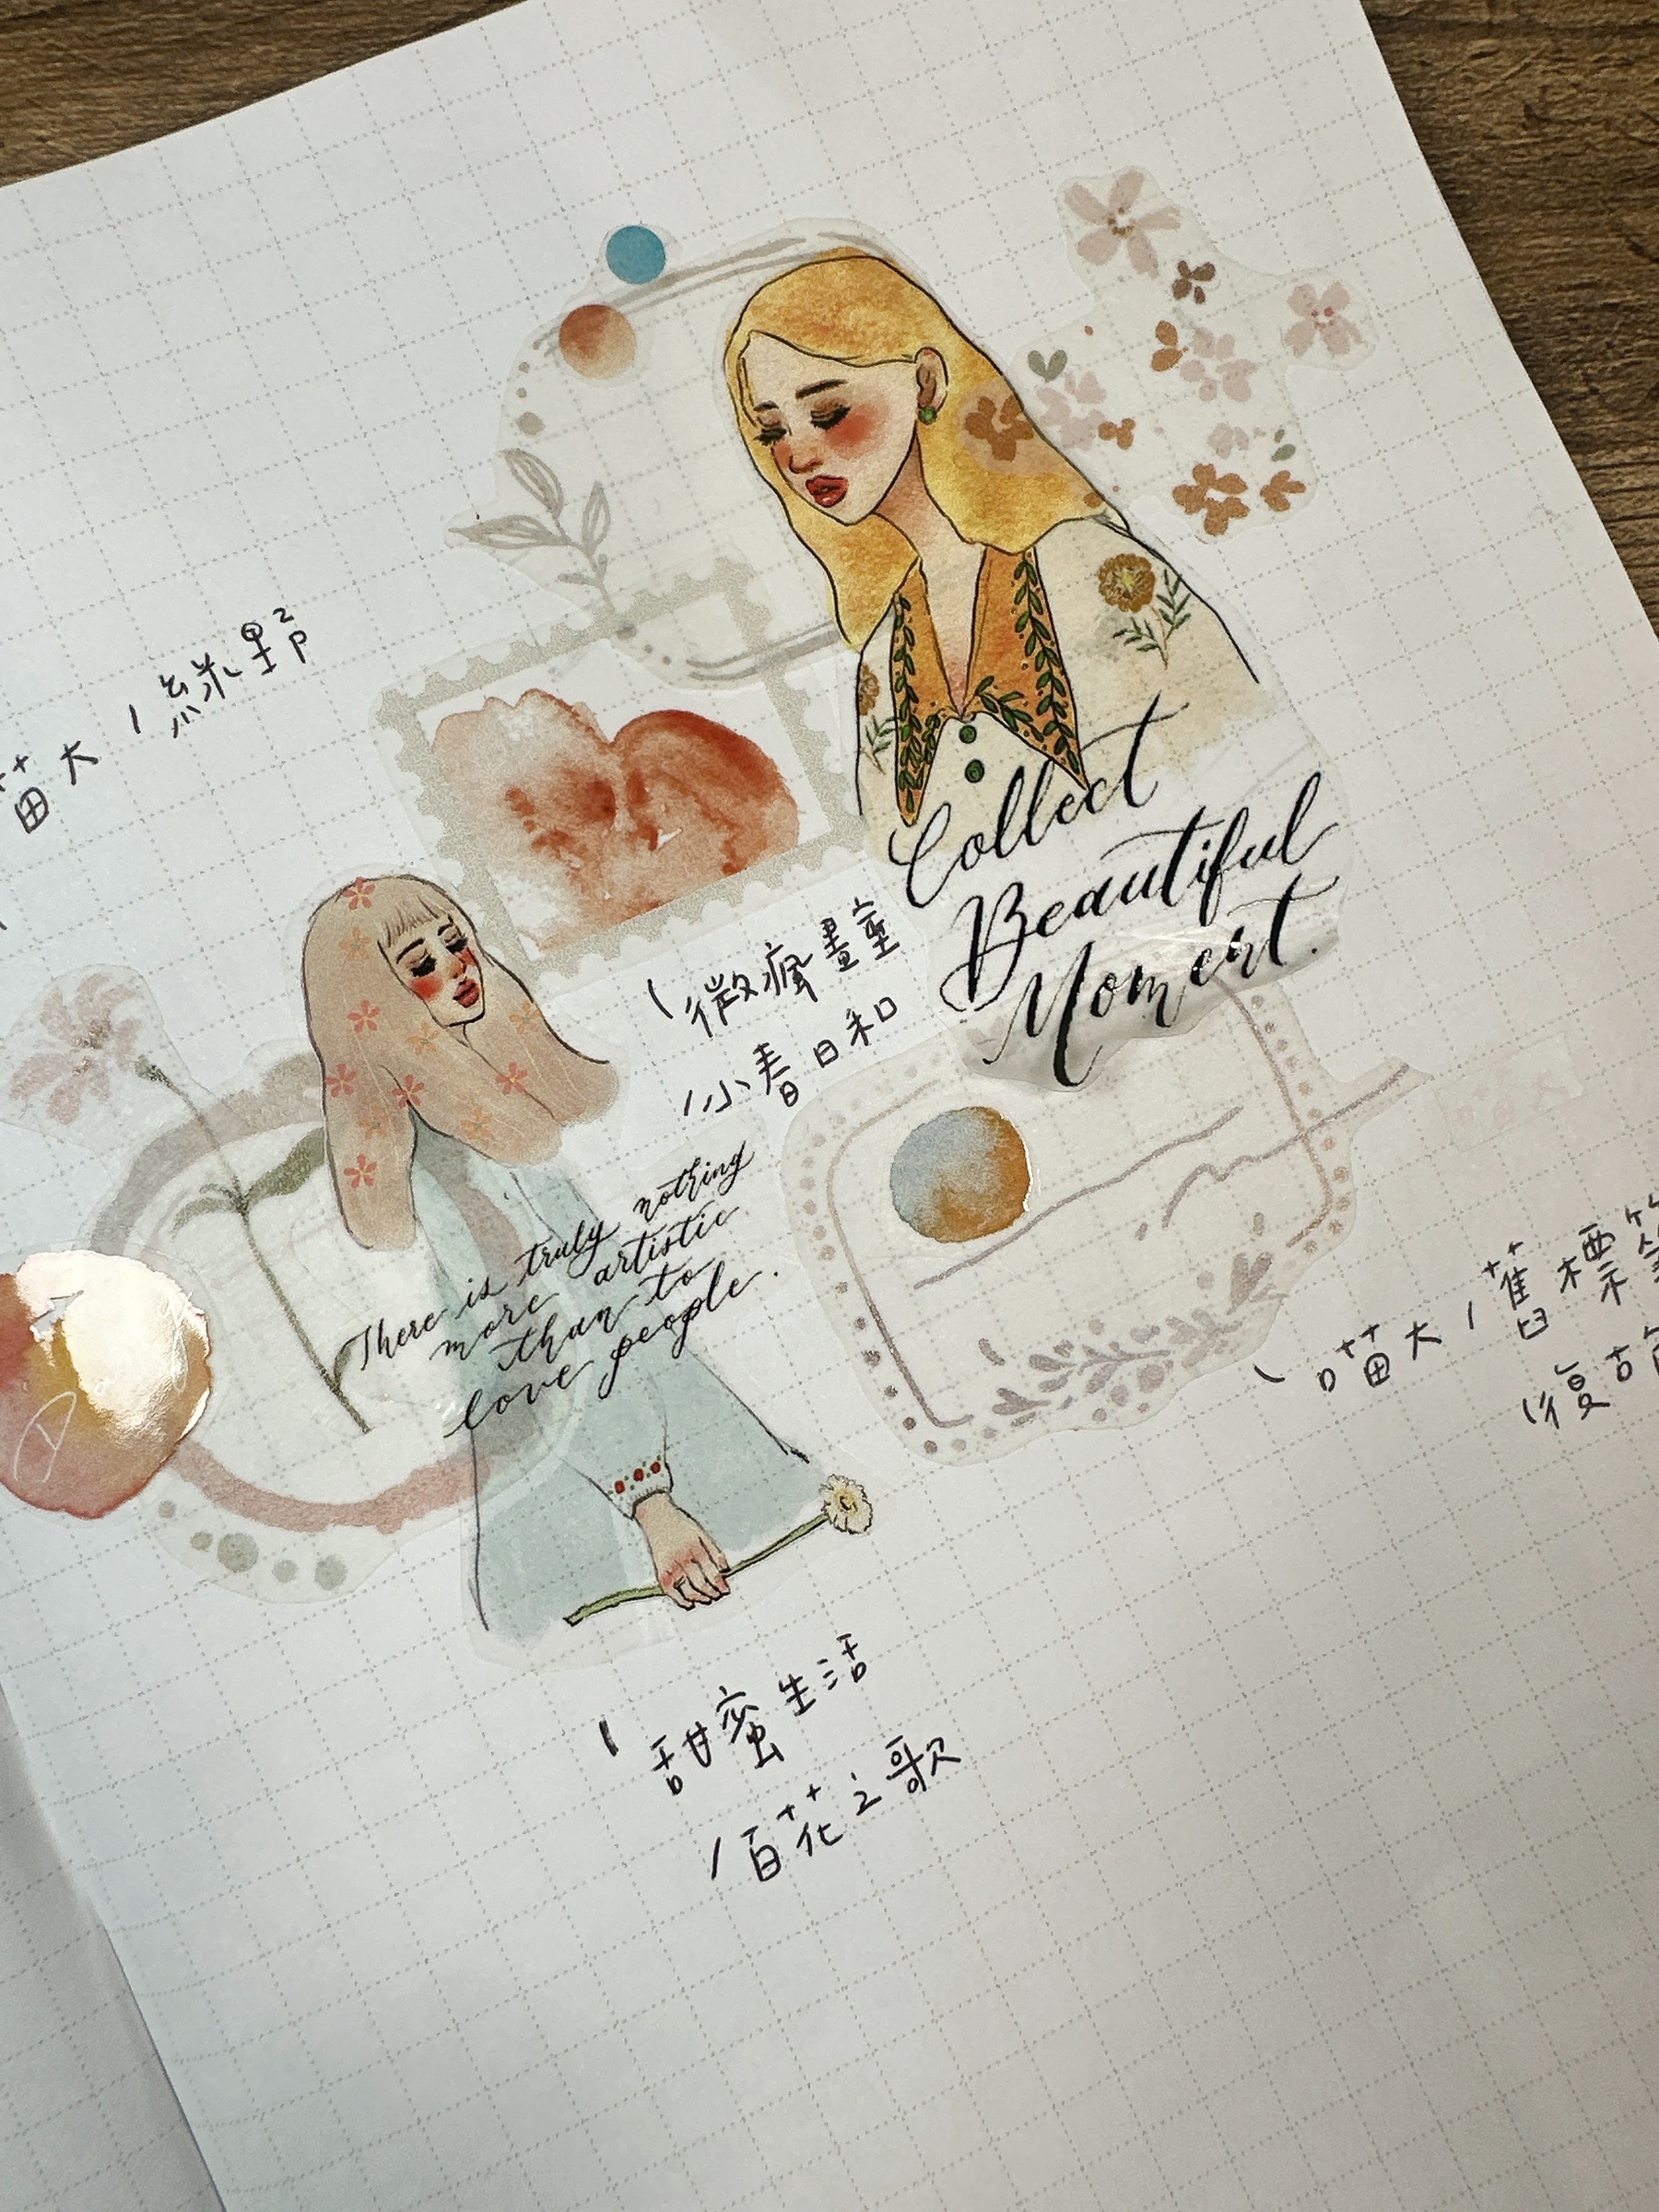 喵大/綠野
Collect
Beautiful
Moment.
\微瘋畫室
/小春日和
There is truly nothing
more artistic
than to
love people.
\喵大/舊標籤
\復古
\甜蜜生活
/百花之歌